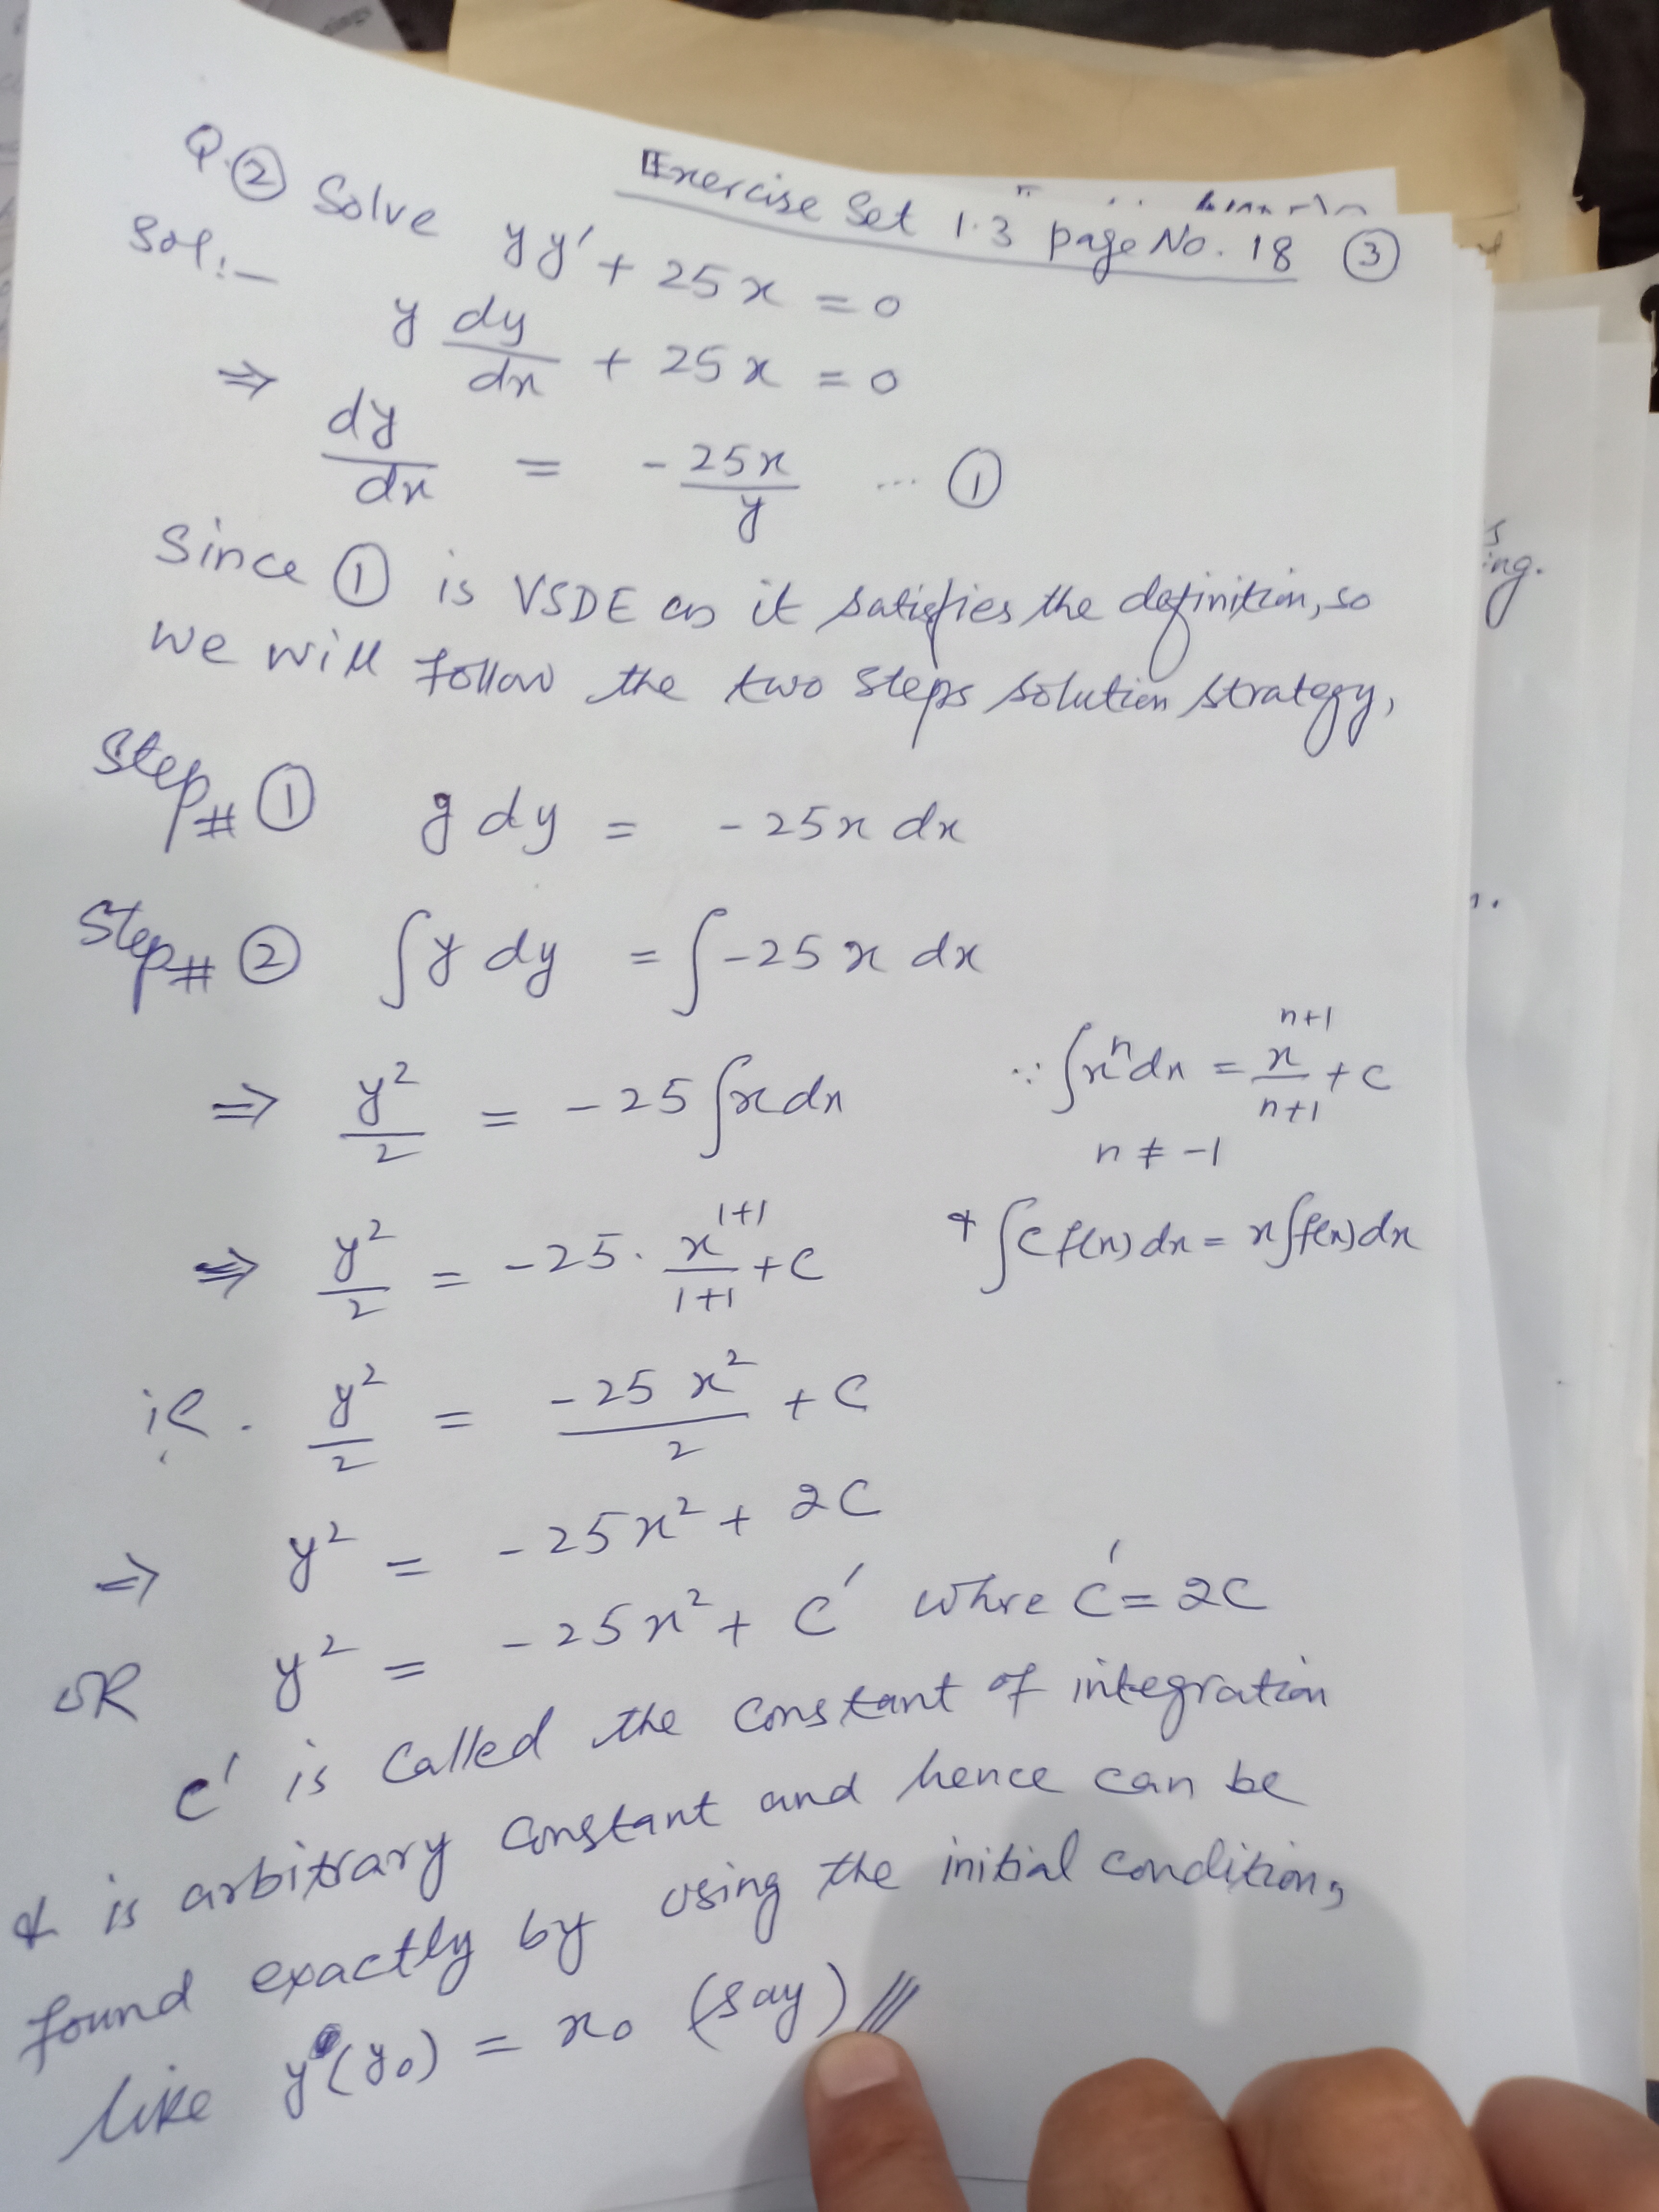 Exercise Set 1.3 page No. 18 ③
Q.② Solve yy' + 25x = 0
Sol:-
y dy/dx + 25x = 0
⇒ dy/dx = -25x/y ... ①
Since ① is VSDE as it satisfies the definition, so
we will follow the two steps solution strategy,
Step# ① y dy = -25x dx
Step# ② ∫y dy = ∫-25x dx
⇒ y²/2 = -25 ∫x dx ∵ ∫xⁿ dx = xⁿ⁺¹/n+1 + C
n ≠ -1
⇒ y²/2 = -25. x¹⁺¹/1+1 + C & ∫c f(x) dx = x∫f(x) dx
ie. y²/2 = -25x²/2 + C
⇒ y² = -25x² + 2C
OR y² = -25x² + C' whre C' = 2C
C' is called the constant of integration
& is arbitrary constant and hence can be
found exactly by using the initial condition,
like y(y₀) = x₀ (say)
s
ing.
n.